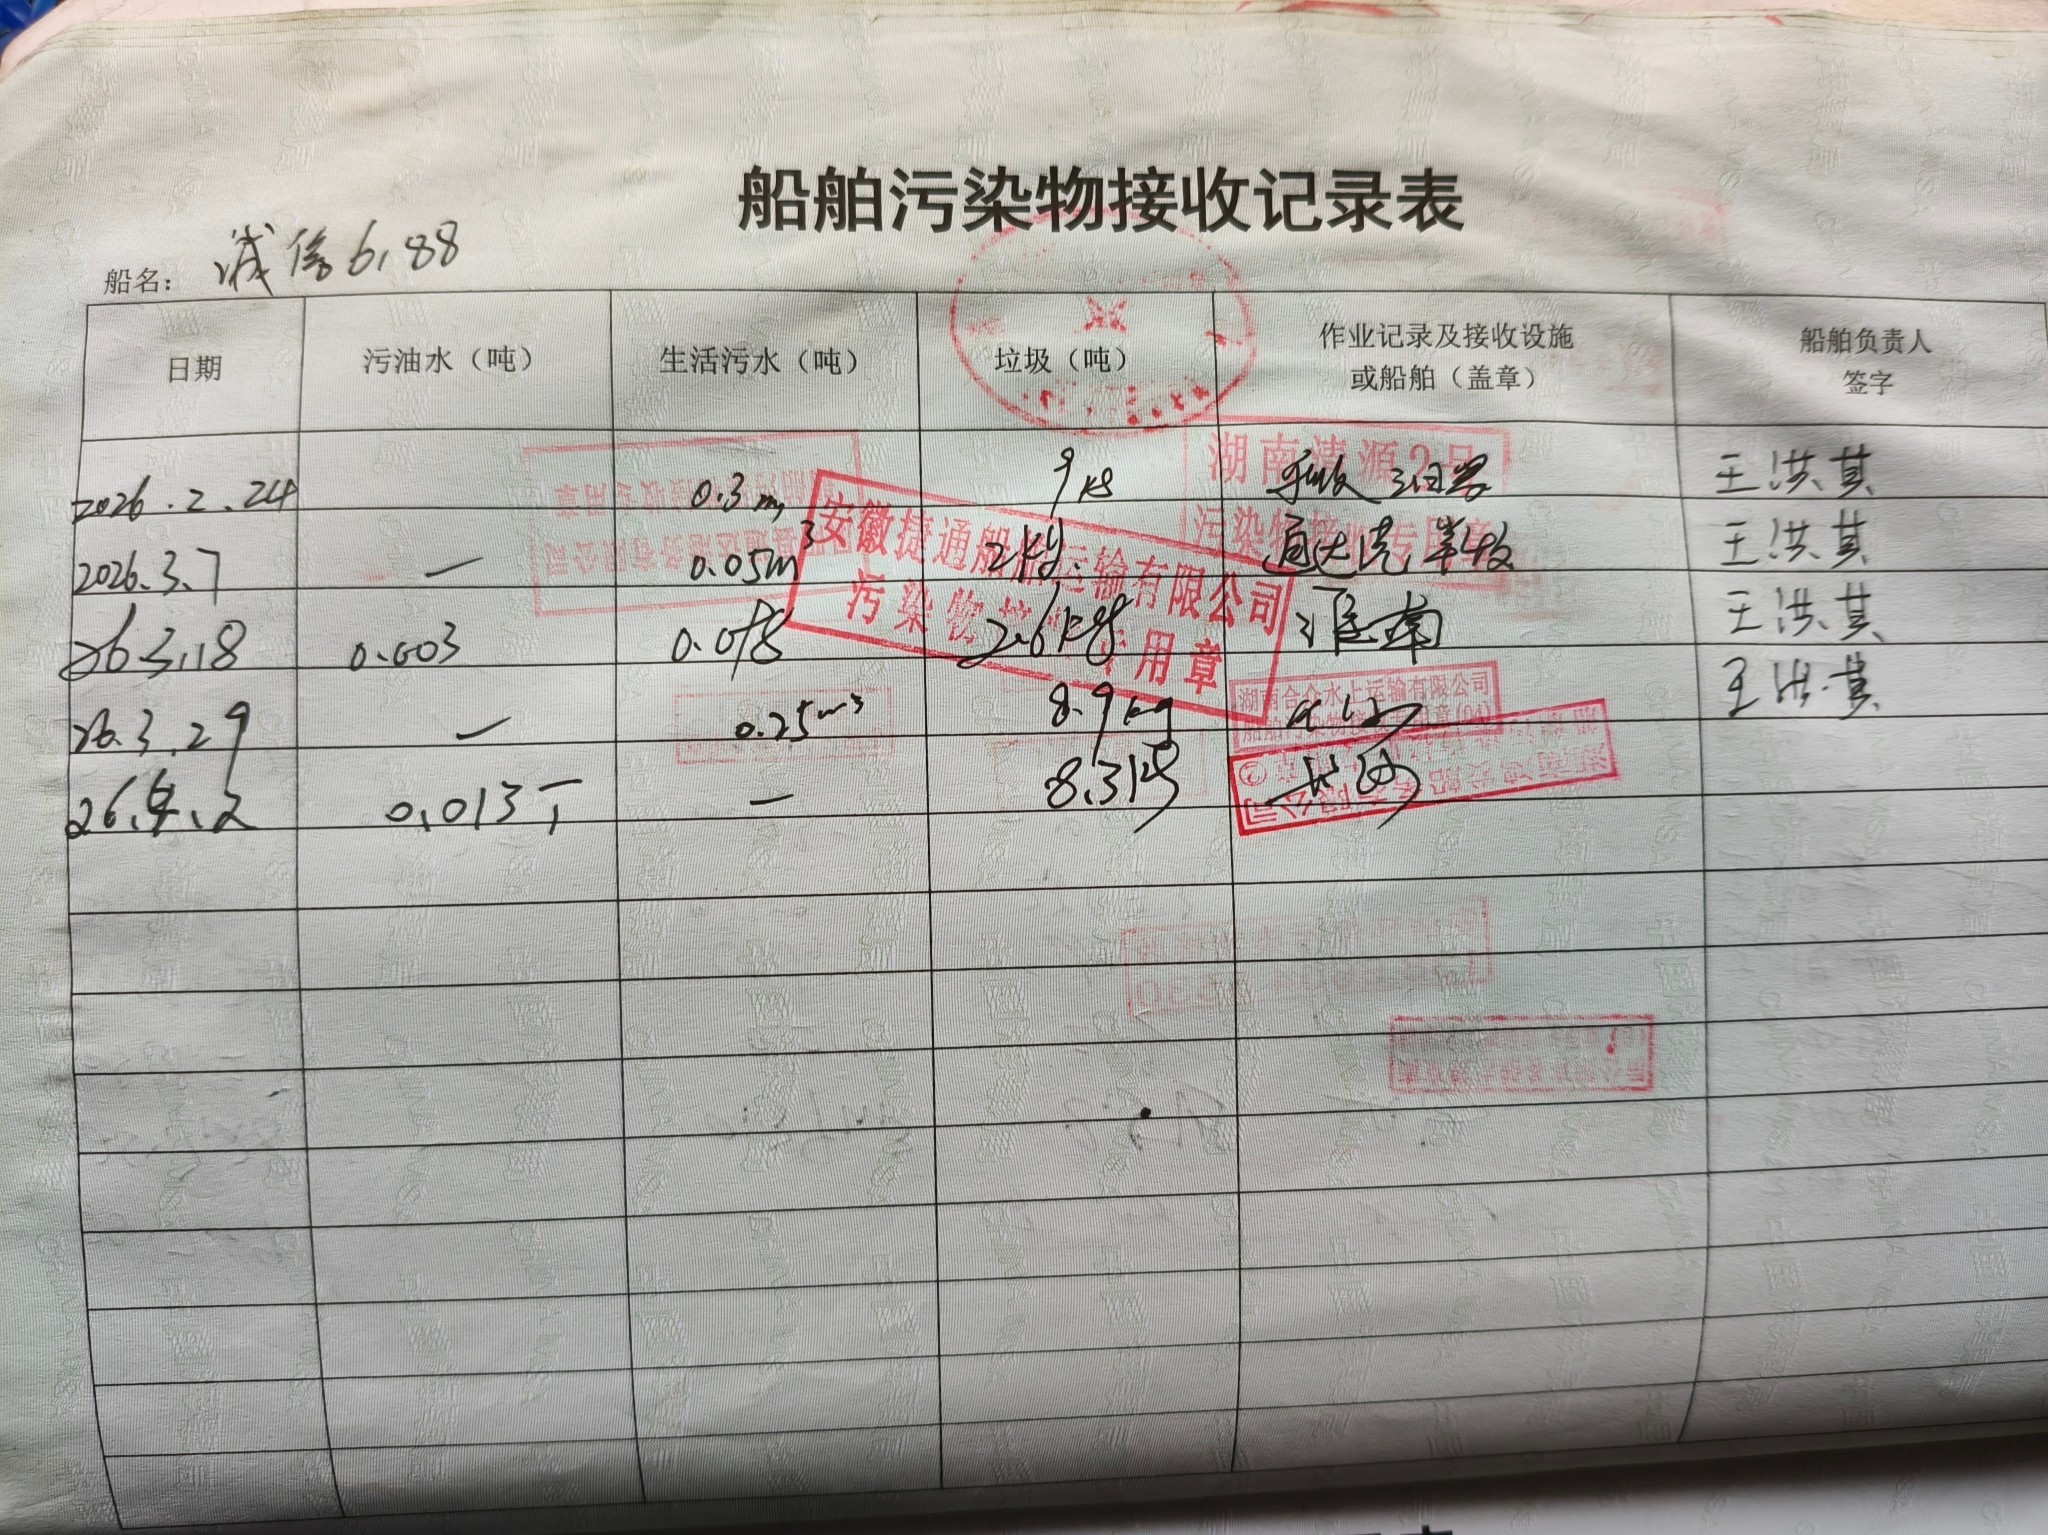 船舶污染物接收记录表
船名： 诚信6188
日期 污油水（吨） 生活污水（吨） 垃圾（吨） 作业记录及接收设施或船舶（盖章） 船舶负责人签字
2026.2.24 0.3m³ 9kg 王洪其
2026.3.7 — 0.05m³ 2kg 王洪其
26.3.18 0.003 0.078 2.6kg 淮南 王洪其
26.3.29 — 0.25m³ 8.9kg 王洪其
26.4.2 0.013T — 8.3kg 长沙
湖南清源2号
污染物接收专用章
安徽捷通船舶运输有限公司
污染物接收专用章
湖南合众水上运输有限公司
船舶污染物接收专用章(04)